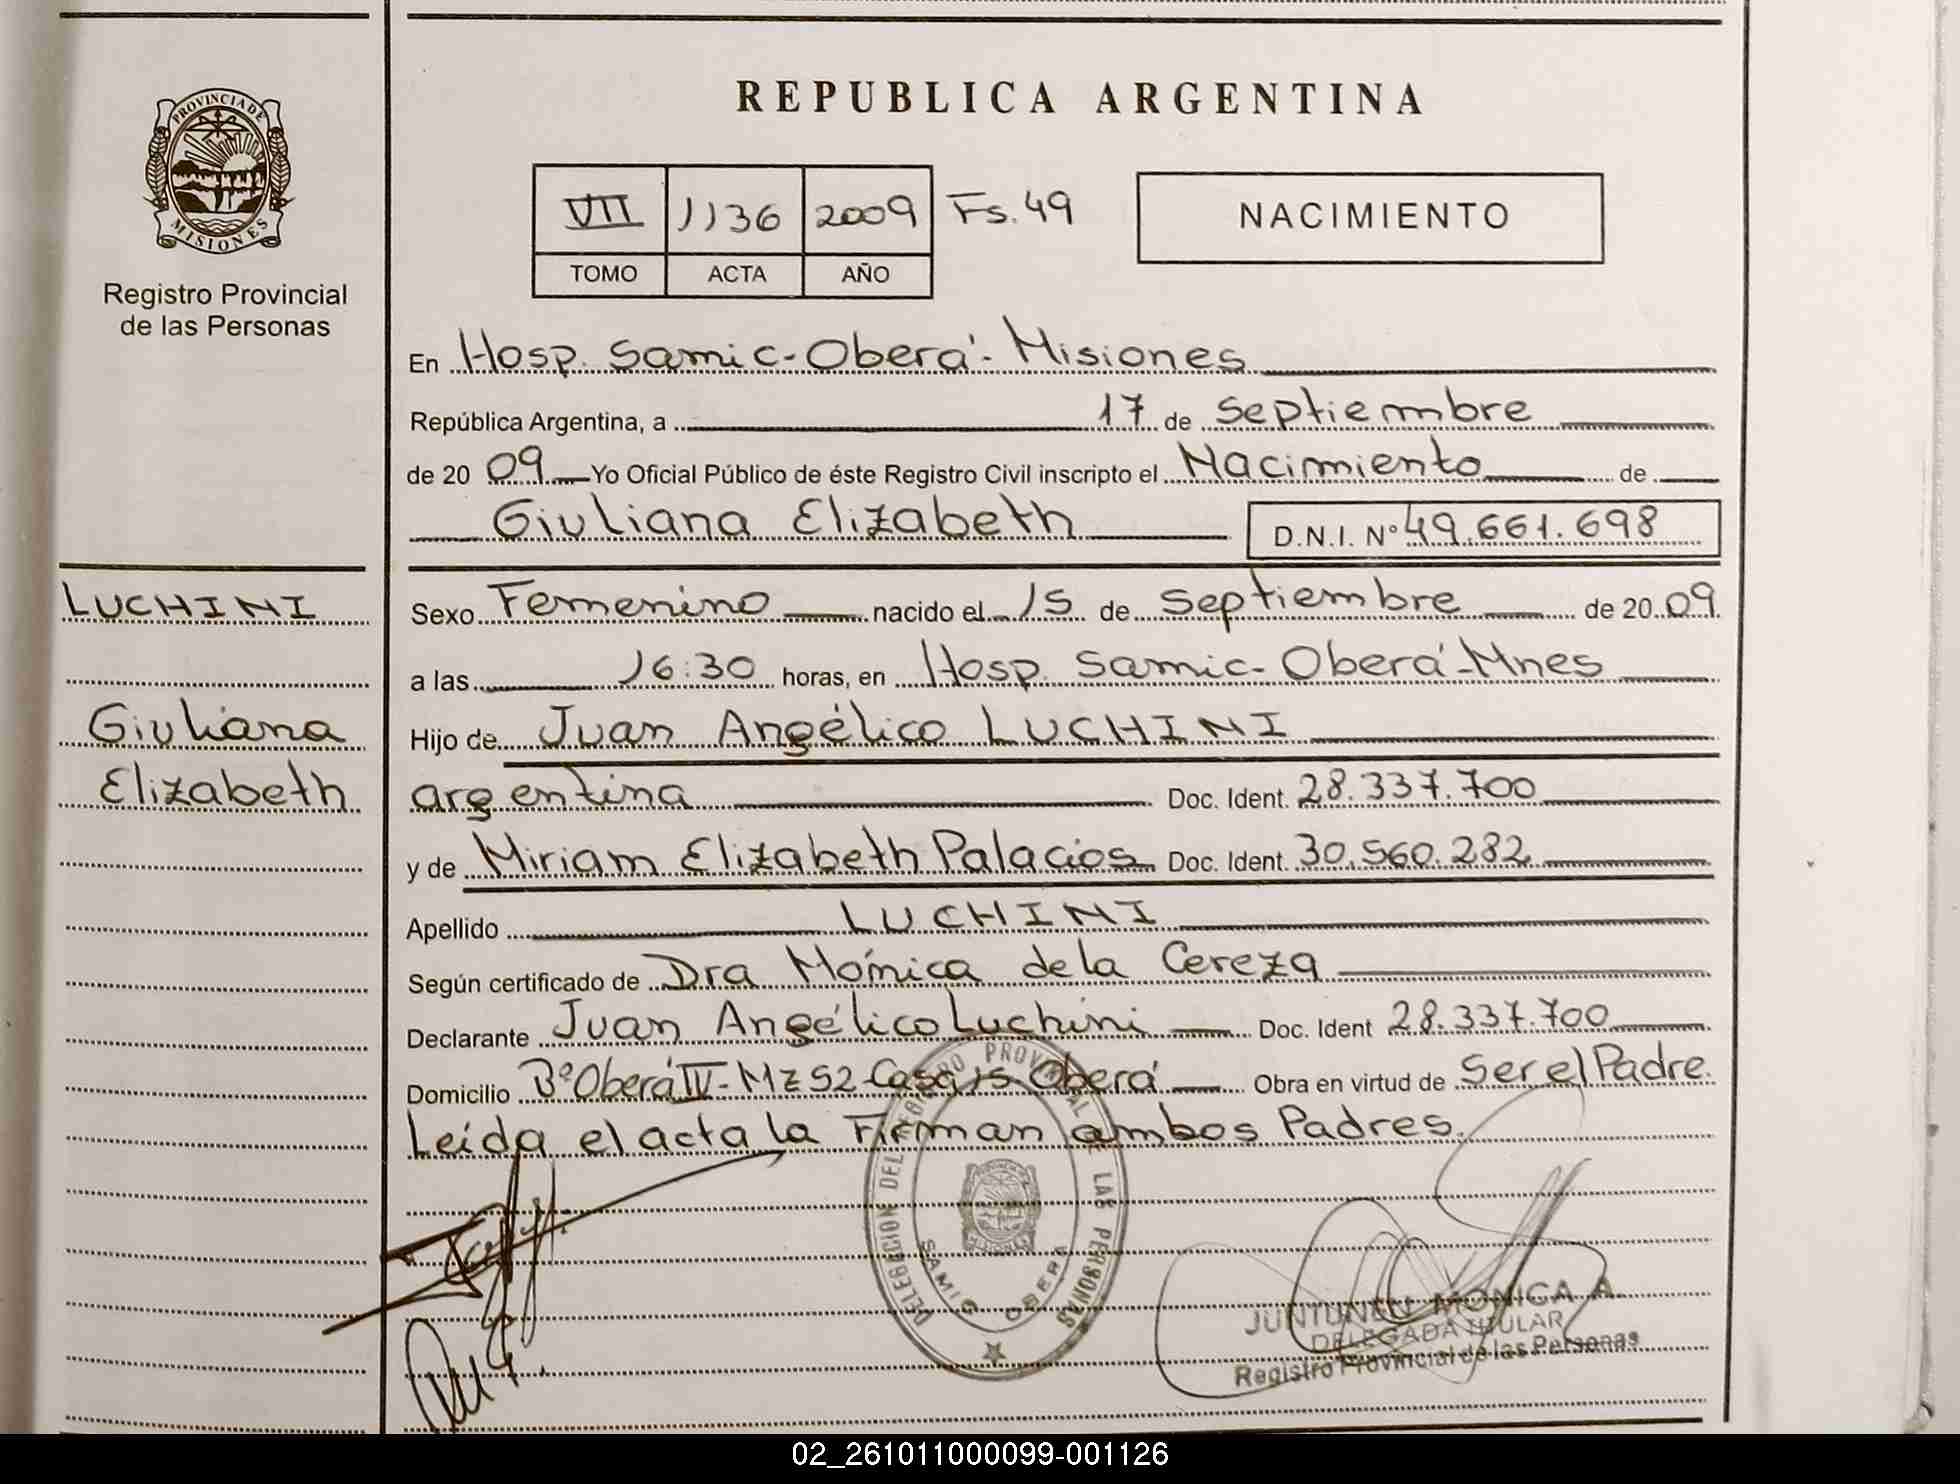 PROVINCIA DE
MISIONES
Registro Provincial
de las Personas
LUCHINI
Giuliana
Elizabeth
REPUBLICA ARGENTINA
VII 1136 2009 Fs. 49
TOMO ACTA AÑO
NACIMIENTO
En Hosp. Samic-Oberá-Misiones
República Argentina, a 17 de Septiembre
de 20 09 Yo Oficial Público de éste Registro Civil inscripto el Nacimiento de
Giuliana Elizabeth D.N.I. Nº 49.661.698
Sexo Femenino nacido el 15 de Septiembre de 20 09
a las 16:30 horas, en Hosp. Samic-Oberá-Mnes
Hijo de Juan Angélico LUCHINI
argentina Doc. Ident. 28.337.700
y de Miriam Elizabeth Palacios Doc. Ident. 30.560.282
Apellido LUCHINI
Según certificado de Dra Mónica de la Cereza
Declarante Juan Angélico Luchini Doc. Ident 28.337.700
Domicilio Bº Oberá IV-Mz 52-Casa 15 Oberá Obra en virtud de Ser el Padre.
Leída el acta la Firman ambos Padres.
DELEGACION DEL REGISTRO PROVINCIAL DE LAS PERSONAS
SAMIC OBERA
MONICA A.
DELEGADA TITULAR
Registro Provincial de las Personas
02_261011000099-001126